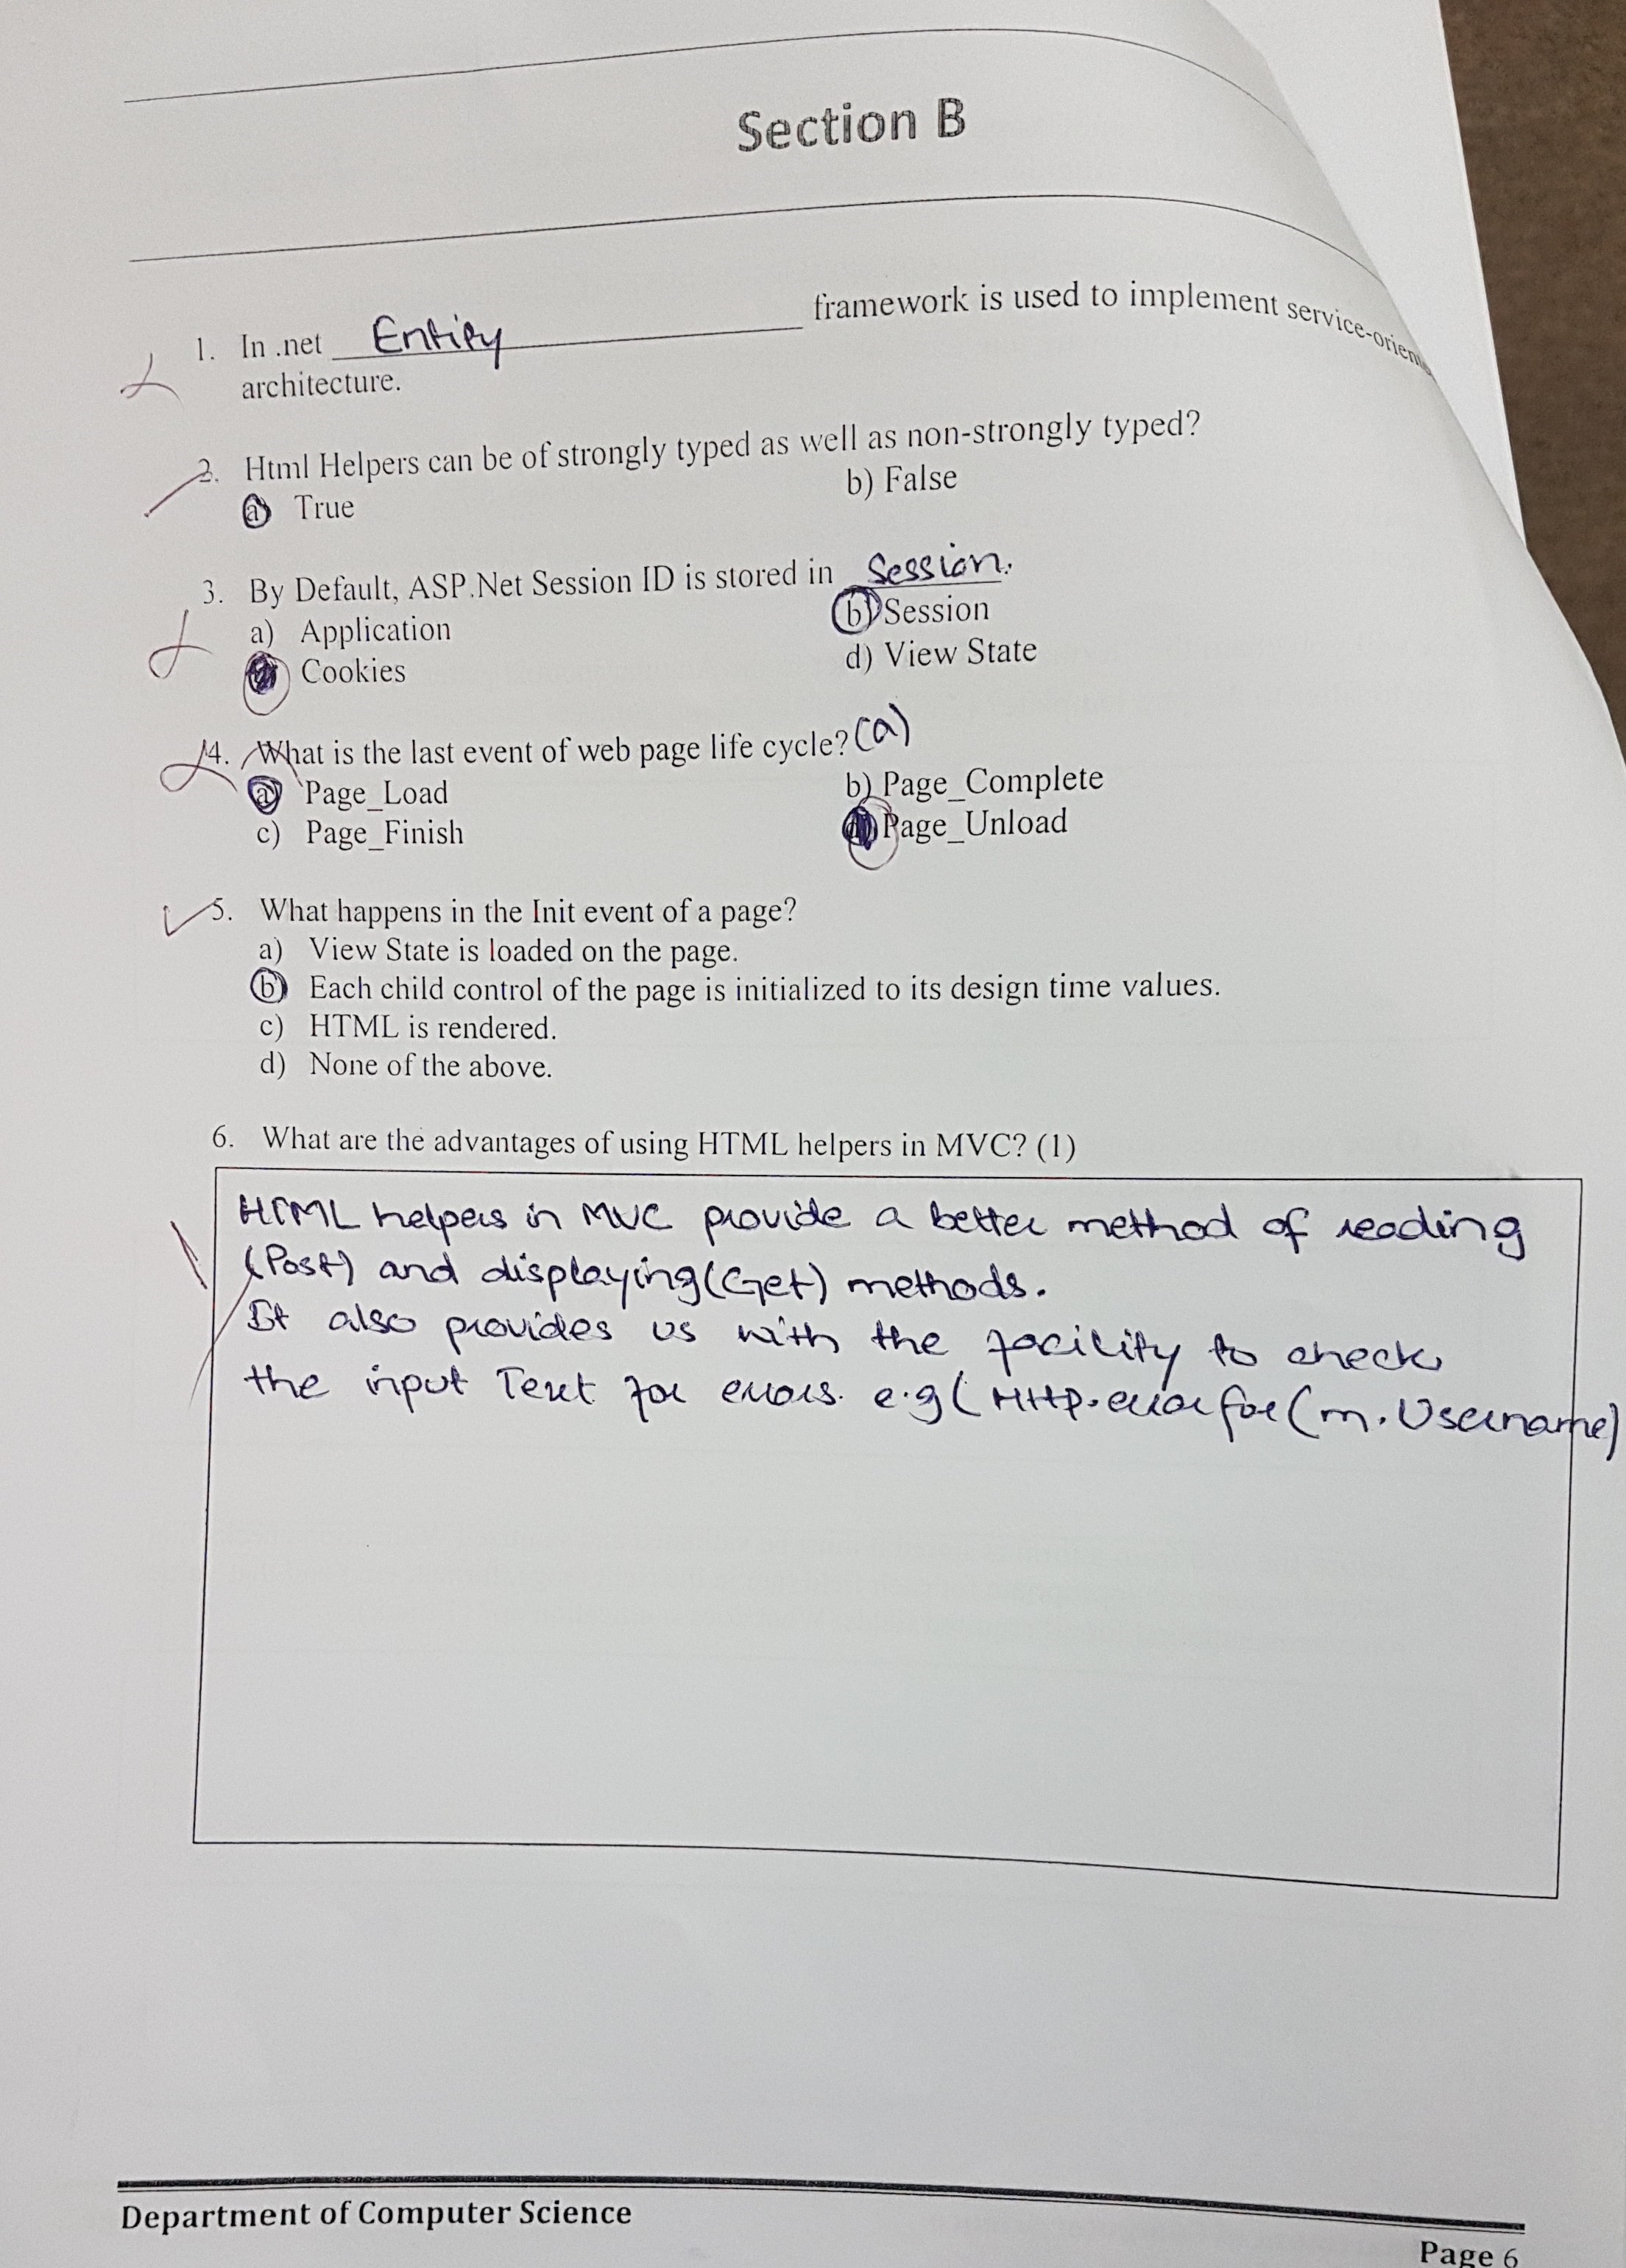 Section B
1. In .net Entity framework is used to implement service-orien
architecture.
2. Html Helpers can be of strongly typed as well as non-strongly typed?
a) True b) False
3. By Default, ASP.Net Session ID is stored in Session.
a) Application b) Session
Cookies d) View State
4. What is the last event of web page life cycle? (a)
a) Page_Load b) Page_Complete
c) Page_Finish Page_Unload
5. What happens in the Init event of a page?
a) View State is loaded on the page.
b) Each child control of the page is initialized to its design time values.
c) HTML is rendered.
d) None of the above.
6. What are the advantages of using HTML helpers in MVC? (1)
HTML helpers in MVC provide a better method of reading
(Post) and displaying (Get) methods.
It also provides us with the facility to check
the input Text for errors. e.g ( Http.errorfor (m.Username)
Department of Computer Science
Page 6